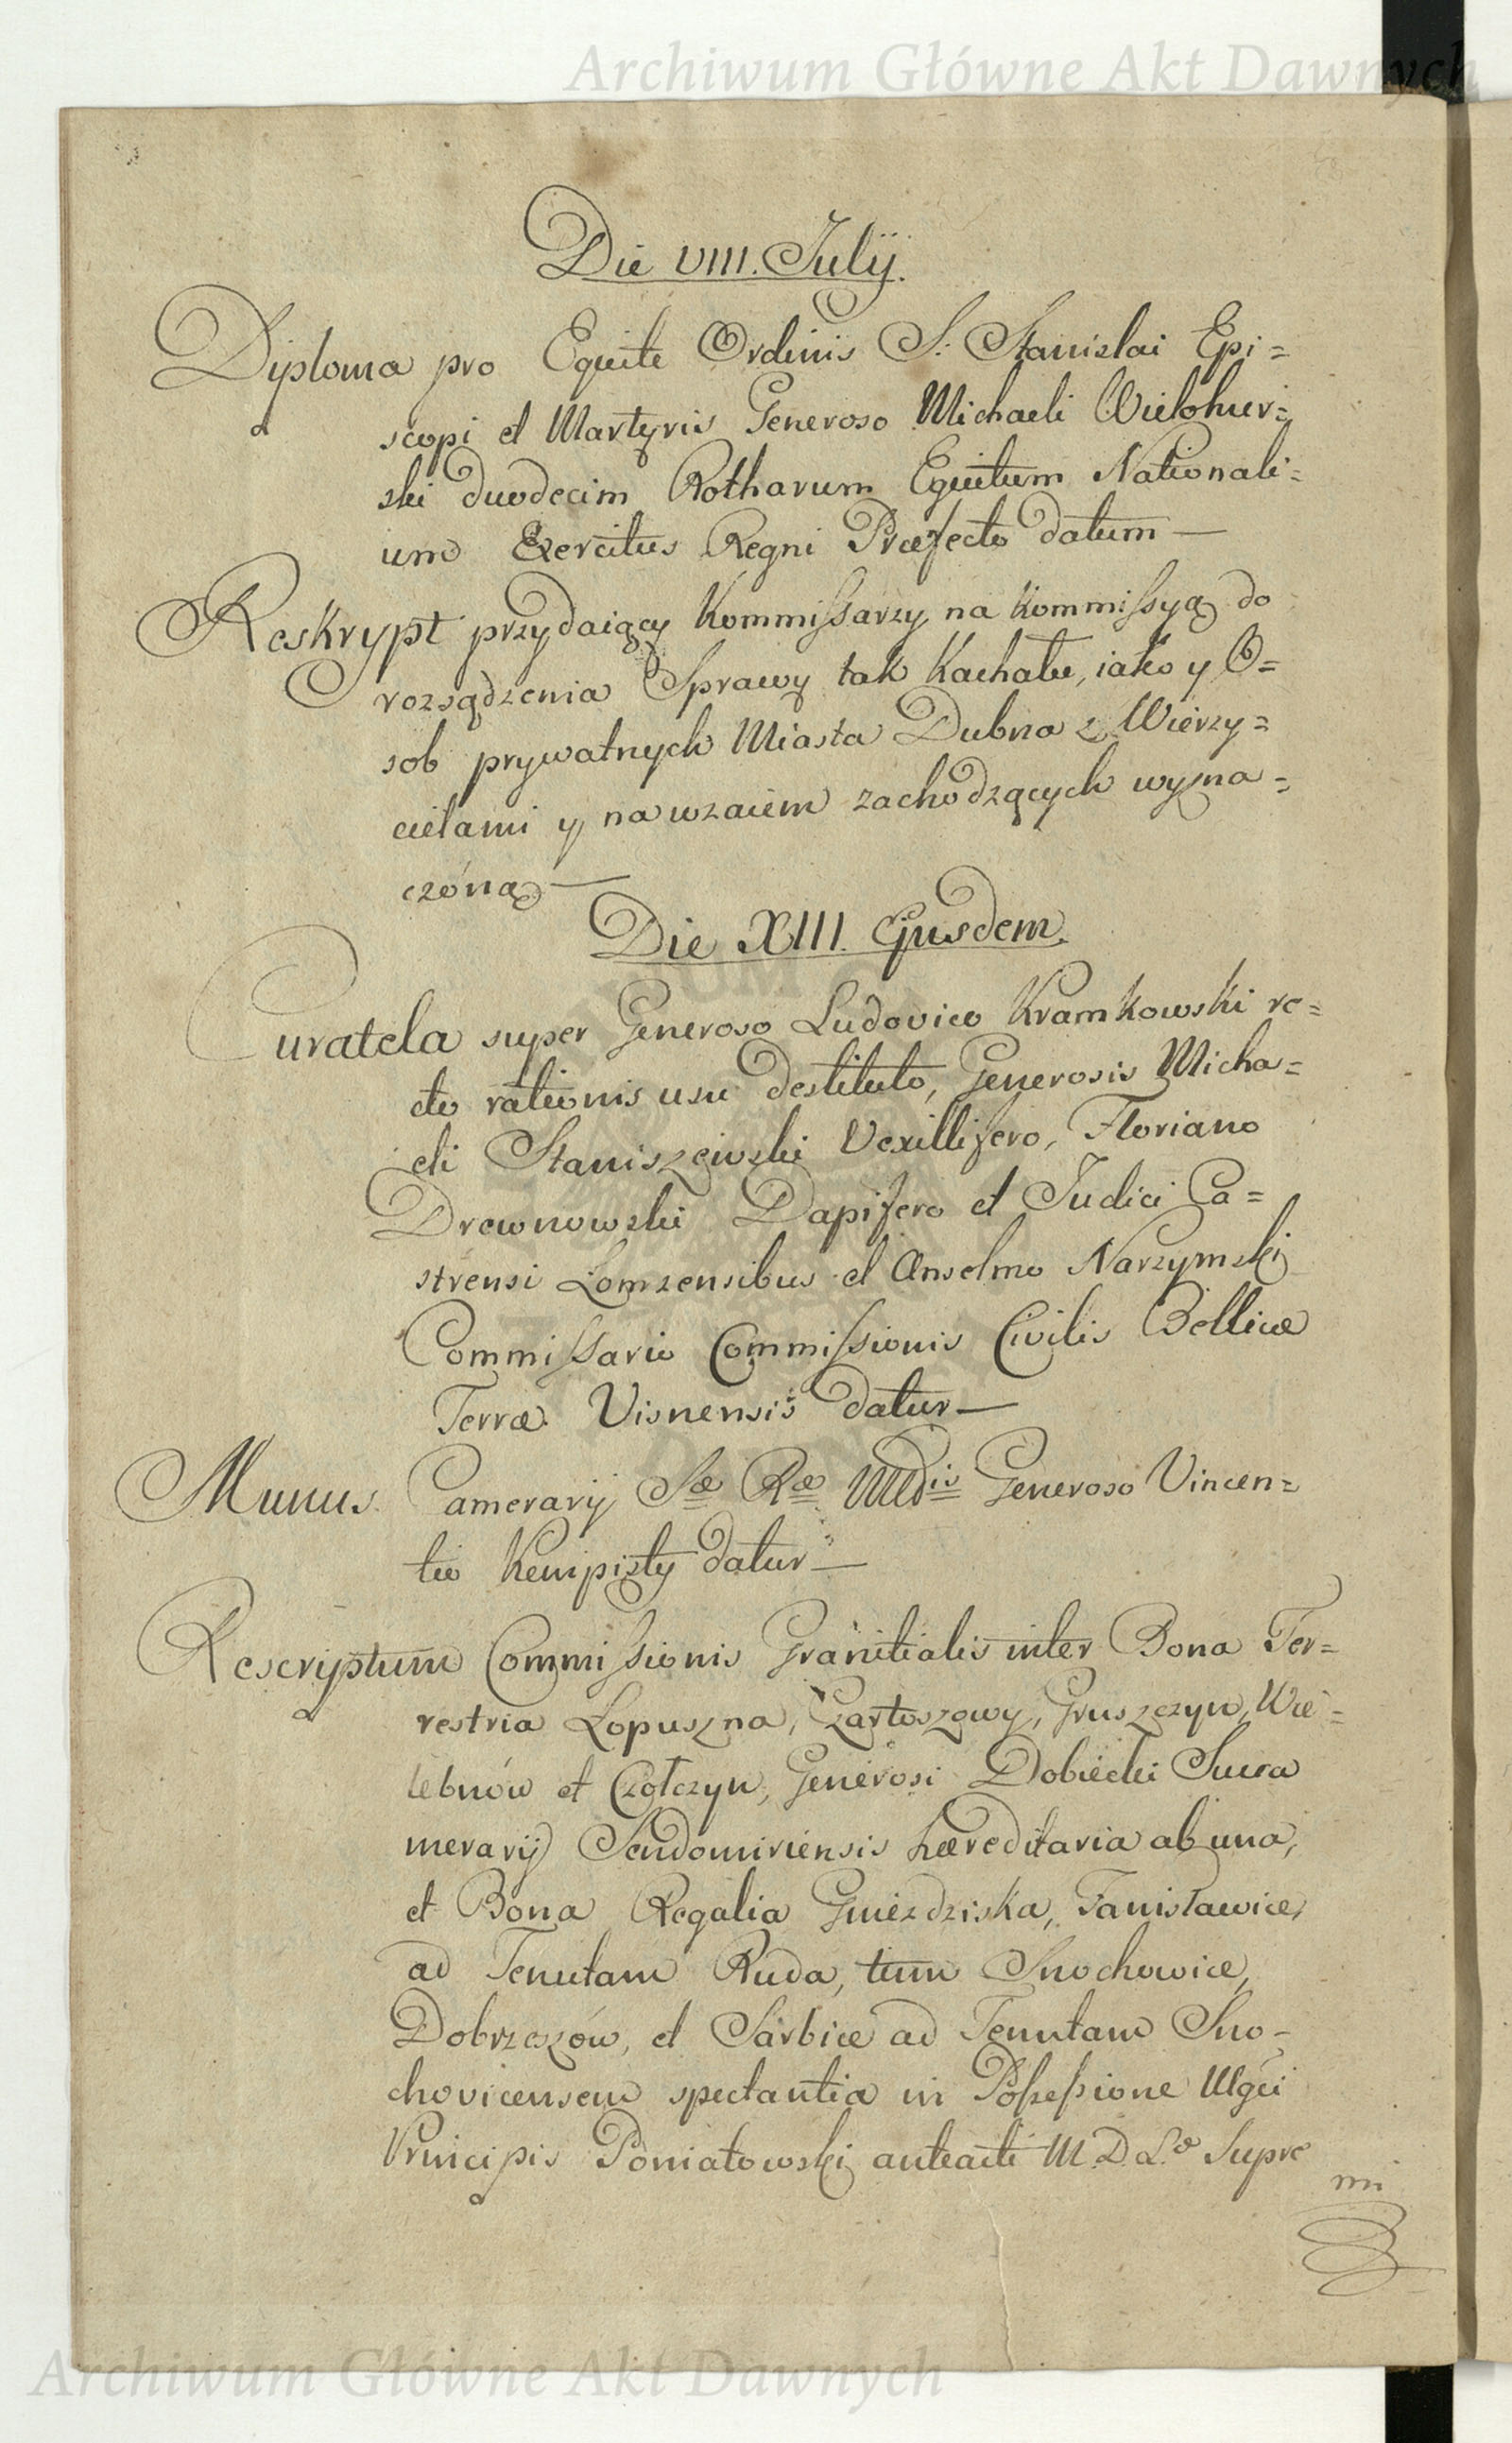 Archiwum Główne Akt Dawnych
Die VIII. Julij.
Diploma pro Equite Ordinis S: Stanislai Epi=
scopi et Martyris Generoso Michaeli Wielohur=
ski duodecim Rotharum Equitum Nationali=
um Exercitus Regni Præfecto datum —
Reskrypt przydaiący Kommissarzy na Kommissyą do
rozsądzenia Sprawy tak Kachału, iako y O=
sob prywatnych Miasta Dubna z Wierzy=
cielami y nawzaiem zachodzących wyzna=
czoną —
Die XIII. Ejusdem.
Curatela super Generoso Ludovico Kramkowski re=
cto rationis usu destituto, Generosis Micha=
eli Staniszewski Vexillifero, Floriano
Drewnowski Dapifero et Judici Ca=
strensi Łomzensibus et Anselmo Narzymski
Commissario Commissionis Civilis Bellicæ
Terræ Visnensis datur —
Munus Camerarij Sæ Ræ Mtis Generoso Vincen=
tio Kempisty datur —
Rescriptum Commissionis Granitialis inter Bona Ter=
restria Łopuszna, Czartoszowy, Gruszczyn, Wie=
lebnów et Czołczyn, Generosi Dobiecki Succa
merarij Sendomiriensis hæreditaria ab una,
et Bona Regalia Gniezdziska, Fanisławice,
ad Tenutam Ruda, tum Snochowice,
Dobrzeszów, et Sarbice ad Tenutam Sno=
chovicensem spectantia in Possessione Illgci
Principis Poniatowski anteacti M. D. L. Supre
mi
Archiwum Główne Akt Dawnych